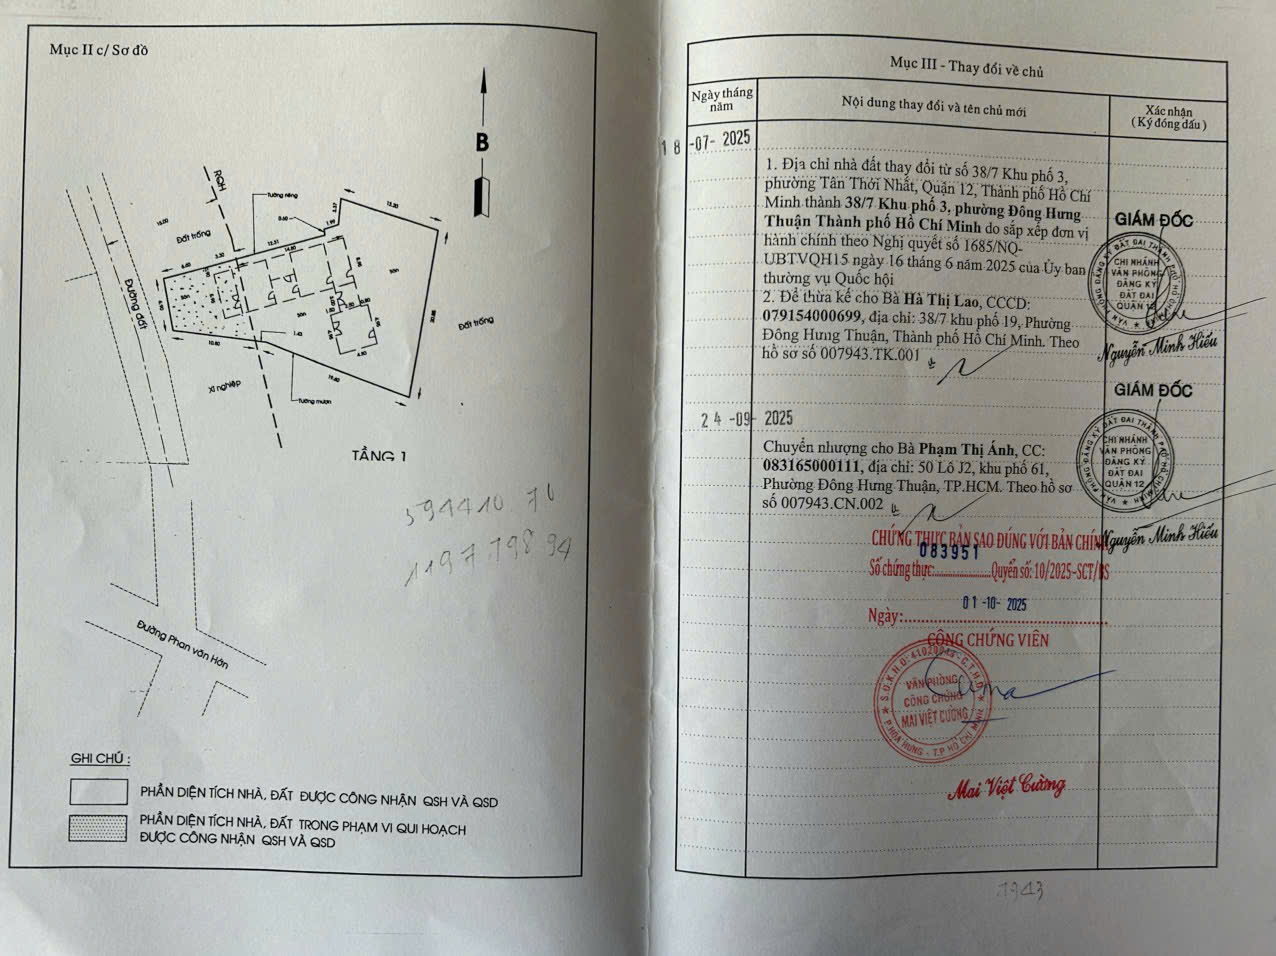 Mục II c/ Sơ đồ
B
RQH
Tường riêng
Đất trống
Đường đất
Sân
Sân
Sân
Đất trống
Xí nghiệp
Tường mượn
TẦNG 1
Đường Phan văn Hớn
GHI CHÚ :
PHẦN DIỆN TÍCH NHÀ, ĐẤT ĐƯỢC CÔNG NHẬN QSH VÀ QSD
PHẦN DIỆN TÍCH NHÀ, ĐẤT TRONG PHẠM VI QUI HOẠCH
ĐƯỢC CÔNG NHẬN QSH VÀ QSD
Mục III - Thay đổi về chủ
Ngày tháng
năm
Nội dung thay đổi và tên chủ mới
Xác nhận
( Ký đóng dấu )
18 -07- 2025
1. Địa chỉ nhà đất thay đổi từ số 38/7 Khu phố 3,
phường Tân Thới Nhất, Quận 12, Thành phố Hồ Chí
Minh thành 38/7 Khu phố 3, phường Đông Hưng
Thuận Thành phố Hồ Chí Minh do sắp xếp đơn vị
hành chính theo Nghị quyết số 1685/NQ-
UBTVQH15 ngày 16 tháng 6 năm 2025 của Ủy ban
thường vụ Quốc hội
2. Để thừa kế cho Bà Hà Thị Lao, CCCD:
079154000699, địa chỉ: 38/7 khu phố 19, Phường
Đông Hưng Thuận, Thành phố Hồ Chí Minh. Theo
hồ sơ số 007943.TK.001
GIÁM ĐỐC
VĂN PHÒNG ĐĂNG KÝ ĐẤT ĐAI THÀNH PHỐ HỒ CHÍ MINH
CHI NHÁNH
VĂN PHÒNG
ĐĂNG KÝ
ĐẤT ĐAI
QUẬN 12
Nguyễn Minh Hiếu
24 -09- 2025
Chuyển nhượng cho Bà Phạm Thị Ánh, CC:
083165000111, địa chỉ: 50 Lô J2, khu phố 61,
Phường Đông Hưng Thuận, TP.HCM. Theo hồ sơ
số 007943.CN.002
GIÁM ĐỐC
VĂN PHÒNG ĐĂNG KÝ ĐẤT ĐAI THÀNH PHỐ HỒ CHÍ MINH
CHI NHÁNH
VĂN PHÒNG
ĐĂNG KÝ
ĐẤT ĐAI
QUẬN 12
Nguyễn Minh Hiếu
CHỨNG THỰC BẢN SAO ĐÚNG VỚI BẢN CHÍNH
083951
Số chứng thực:....................Quyển số: 10/2025-SCT/BS
01 -10- 2025
Ngày:
CÔNG CHỨNG VIÊN
VĂN PHÒNG
CÔNG CHỨNG
MAI VIỆT CƯỜNG
P.HÒA HƯNG - T.P HỒ CHÍ MINH
Mai Việt Cường
1943